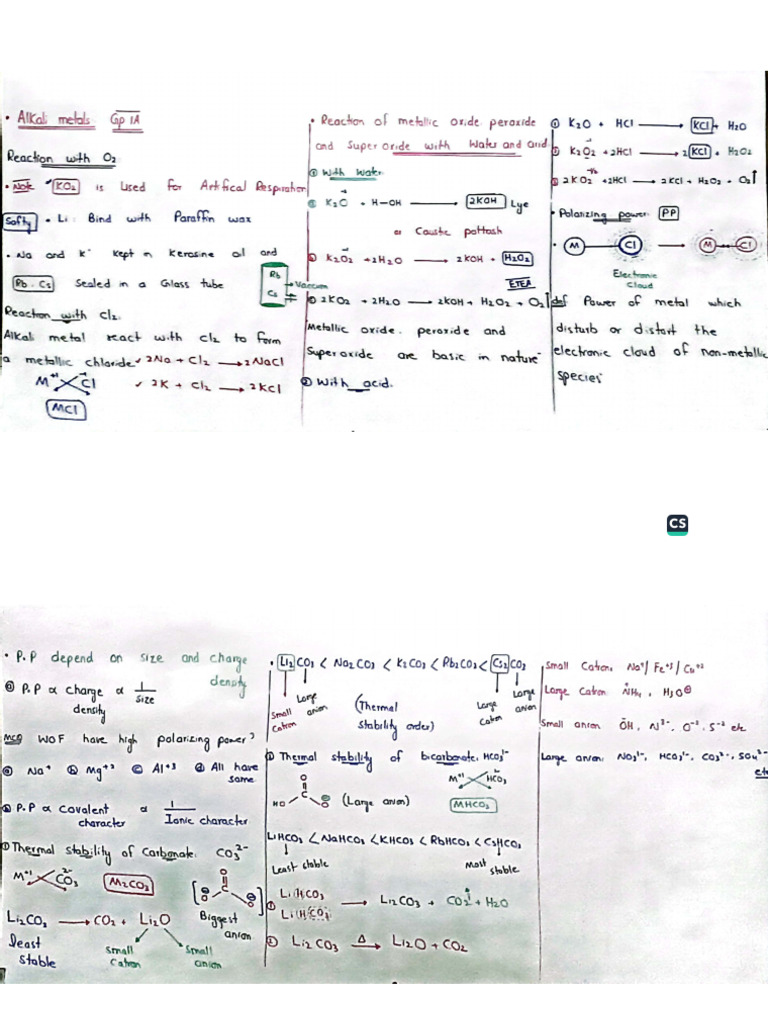 • Alkali metals Gp IA
Reaction with O2
• Note KO2 is Used for Artifical Respiration
Safty • Li: Bind with Paraffin wax
• Na and K kept in Kerosine oil and
Rb . Cs Sealed in a Glass tube
Rb
Cs
Vaccum
Reaction with Cl2.
Alkali metal react with Cl2 to form
a metallic chloride ✓ 2Na + Cl2 → 2NaCl
M+1 Cl-1
✓ 2K + Cl2 → 2KCl
MCl
• Reaction of metallic oxide peroxide
and Super oxide with Water and acid.
① With Water
① K2O + H-OH → 2KOH Lye
or Caustic pottash
② K2O2 + 2H2O → 2KOH + H2O2
ETEA
③ 2KO2 + 2H2O → 2KOH + H2O2 + O2↑
Metallic oxide. peroxide and
Superoxide are basic in nature
② With acid.
① K2O + HCl → KCl + H2O
② K2O2 + 2HCl → 2KCl + H2O2
③ 2KO2 + 2HCl → 2KCl + H2O2 + O2↑
• Polarizing power PP
M Cl → M Cl
Electronic
Cloud
def Power of metal which
disturb or distort the
electronic cloud of non-metallic
species
CS
• P.P depend on size and charge
density
P.P ∝ Charge density ∝ 1/Size
MCQ WOF have high polarizing power?
ⓐ Na+ ⓑ Mg+2 ⓒ Al+3 ⓓ All have
same
P.P ∝ Covalent character ∝ 1/Ionic character
① Thermal stability of Carbonate. CO3 2-
M+1 CO3 2-
M2CO3
O C O O
Biggest
anion
Li2CO3 → CO2 + Li2O
least
stable
Small
Cation
Small
anion
• Li2CO3 < Na2CO3 < K2CO3 < Rb2CO3 < Cs2CO3
Small
Cation
Large
anion
(Thermal
Stability order)
Large
Cation
Large
anion
Thermal stability of bicarbonate. HCO3 1-
HO C O O (Large anion)
M+1 HCO3
MHCO3
LiHCO3 < NaHCO3 < KHCO3 < RbHCO3 < CsHCO3
Least stable
Most
stable
① LiHCO3
LiHCO3
→ Li2CO3 + CO2 + H2O
② Li2CO3 —Δ→ Li2O + CO2
Small Cation. Na+/ Fe+3/ Cu+2
Large Cation NH4 , H3O⊕
Small anion OH, N3-, O-2, S-2 etc
Large anion. NO3 1-, HCO3 1-, CO3 2-, SO4 2-
etc